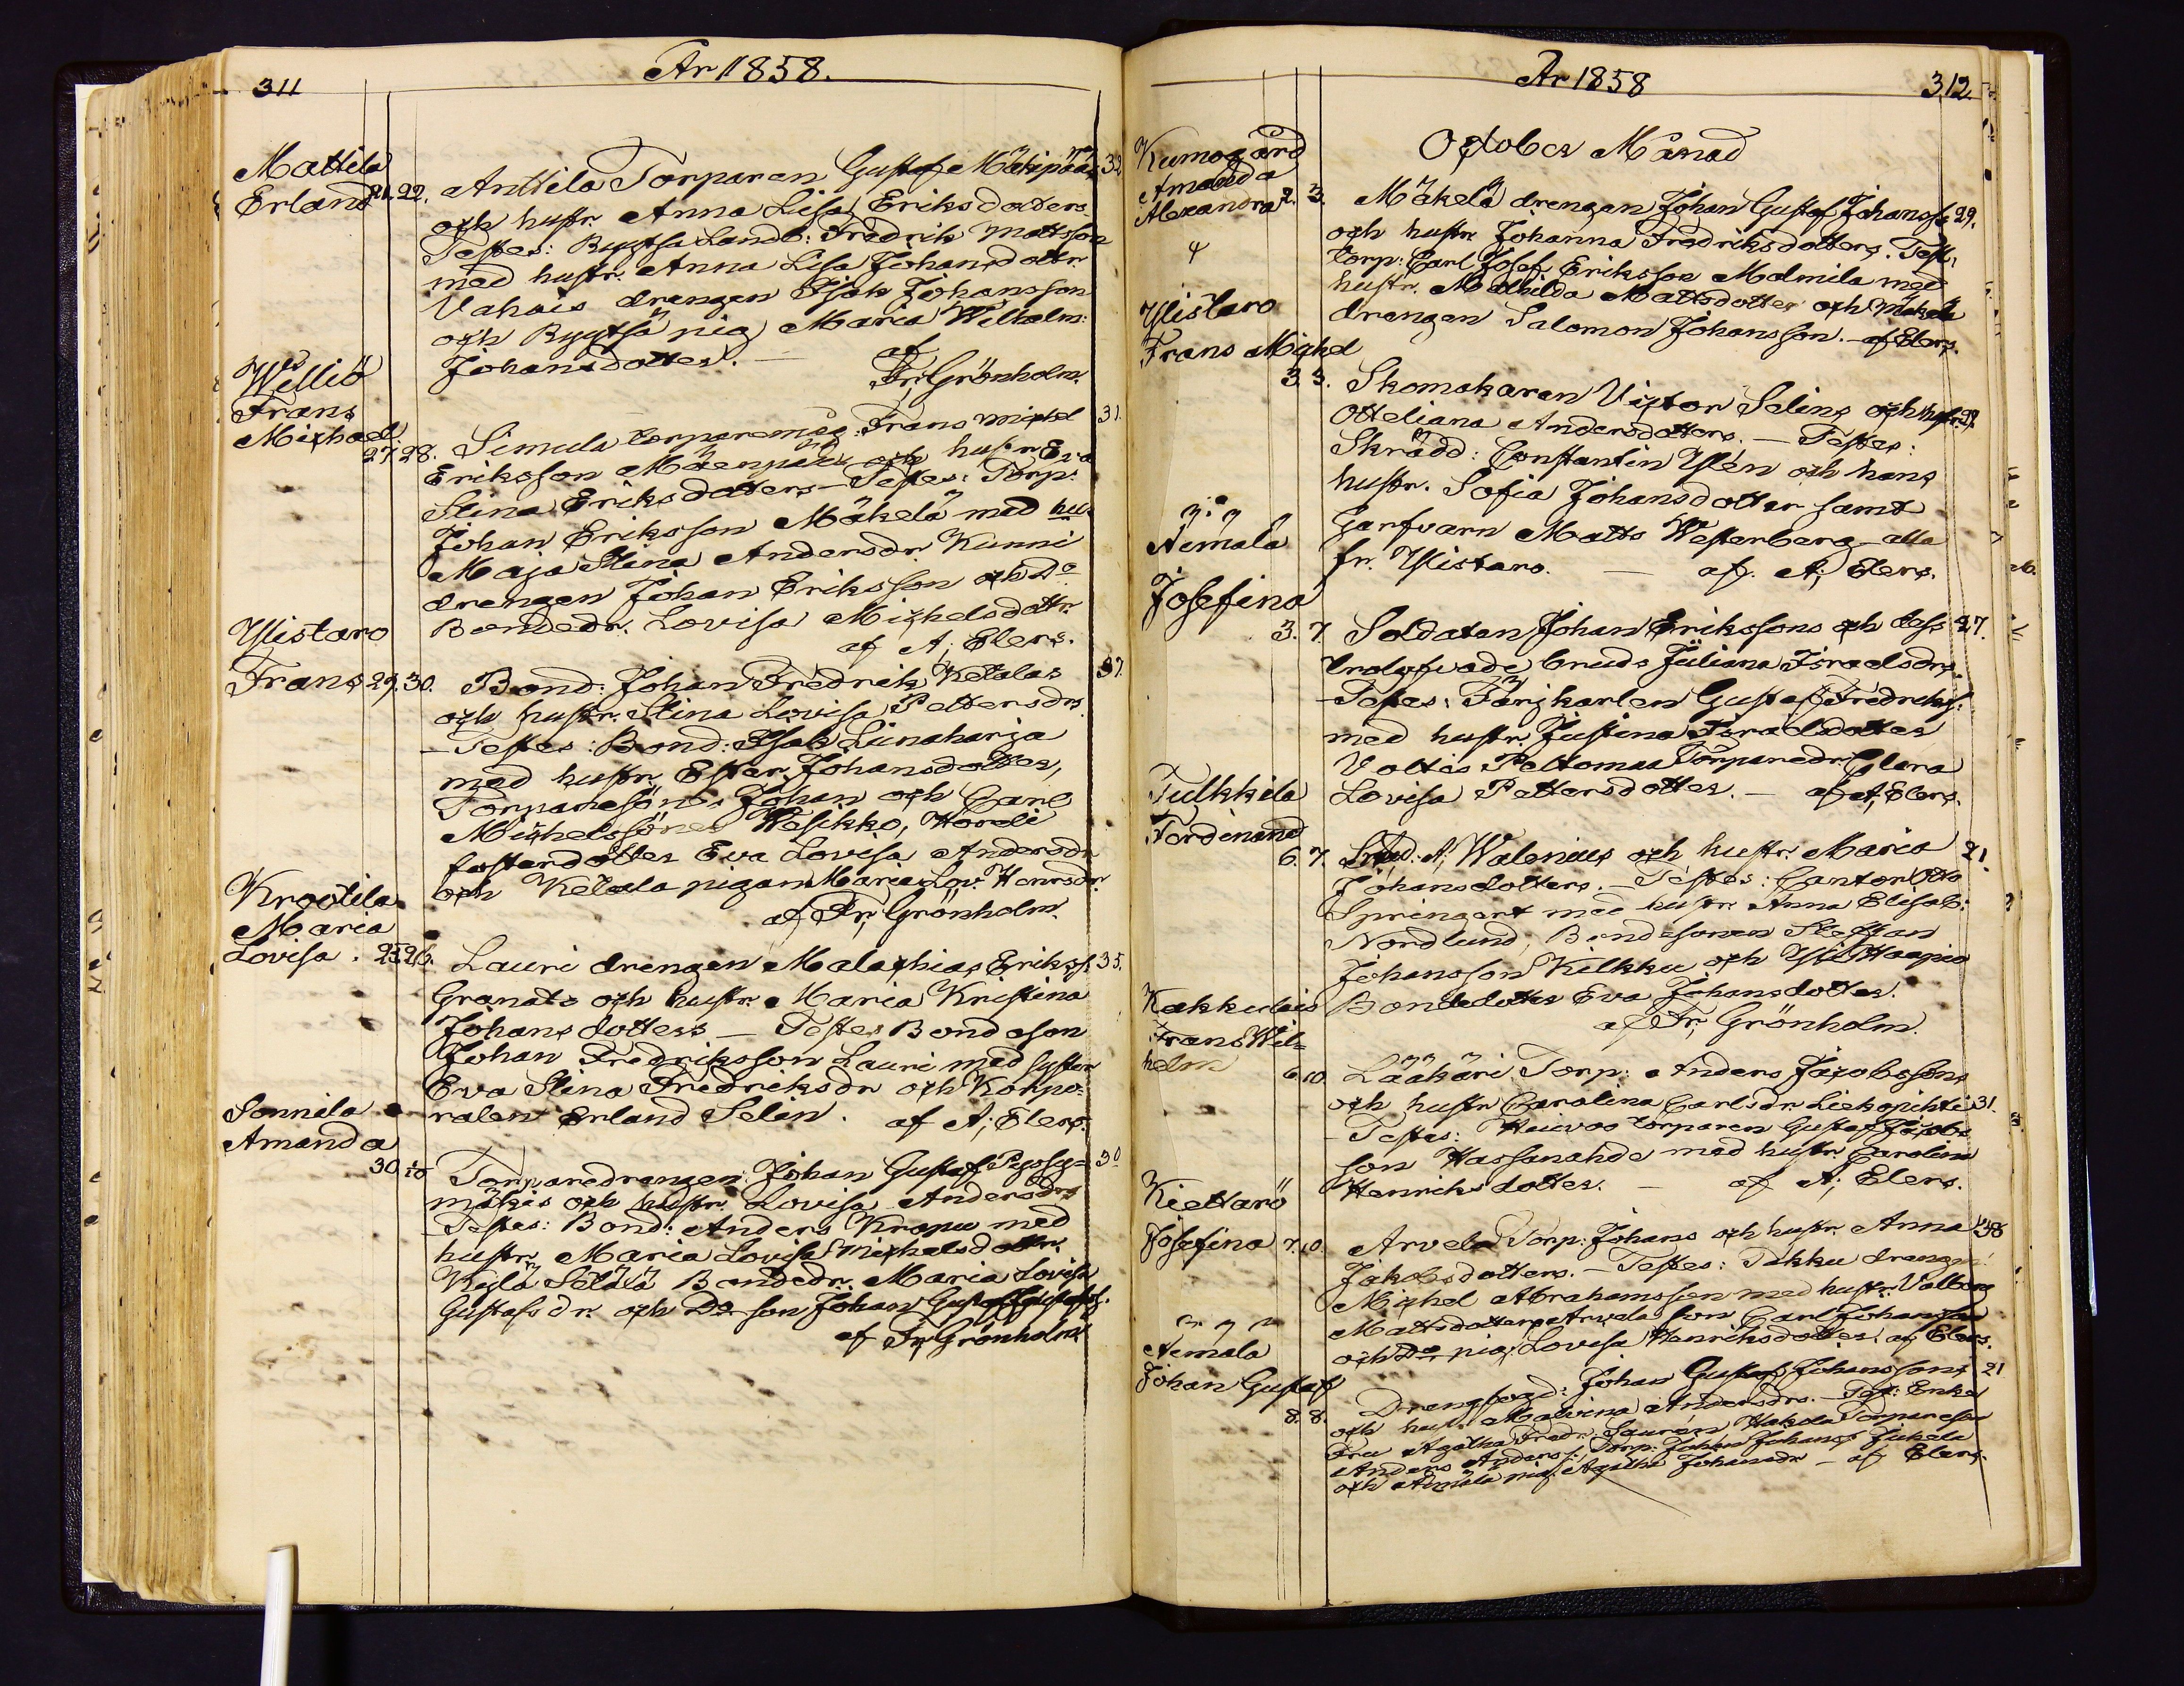 311
År 1858.
Mattila
Erland 21. 22. Anttila Torparen Gustaf Mäkipääs 32
och hustr. Anna Lisa Eriksdotters
Testes: Ryytsä Landb: Fredrik Mattsson
med hustr. Anna Lisa Johansdottr.
Vahais drengen Isak Johansson
och Ryytsä pig. Maria Wilhelm:
Johansdotter. — af
Fr; Grönholm.
Welliö
Frans
Michael
27. 28. Simula torparemåg: Frans Michel 31.
Eriksson Mäenpää och hustr. Eva
Stina Eriksdotters — Testes: Torp:
Johan Eriksson Mäkelä med hu-
Maja Stina Andersdr. Kunni
drengen Johan Eriksson och Do
Bondedr. Lovisa Michelsdottr.
af A; Elers.
Ylistaro
Frans 29. 30. Bond: Johan Fredrik Ketalas 37.
och hustr. Stina Lovisa Pettersdrs
— Testes: Bond: Isak Liinaharja
med hustr. Ester Johansdotter,
Torparesöner Johan och Carl
Michelssöner Wesikko, Horeli
fosterdotter Eva Lovisa Andersdr
och Ketala pigan Maria Lov. Henrsdr.
af Fr; Grönholm.
Krootila
Maria
Lovisa. 25. 26. Lauri drengen Malachias Erikss. 35.
Granats och hustr. Maria Kristina
Johansdotters — Testes Bondeson
Johan Fredriksson Lauri med syster
Eva Stina Fredriksdr och Korpo-
ralen Erland Selin. af A; Elers.
Sonnila
Amanda
30. 10 Torparedrengen Johan Gustaf Pyssy- 30
mäkis och hustr. Lovisa Andersdrs
Testes: Bond: Anders Krapu med
hustr. Maria Lovisa Michelsdottr.
Kylä Sälälä Bondedr. Maria Lovisa
Gustafsdr. och Do son Johan Gustaf Gustafss.
af Fr; Grönholm
År 1858
312
October Månad
Kumogård
Amanda
Alexandra 2. 3. Mäkelä drengen Johan Gustaf Johanss. 29.
och hustr Johanna Fredriksdotters. Test:
torp: Carl Josef Eriksson Malmila med
hustr. Mathilda Mattsdotter och Mäkelä
drengen Salomon Johansson. — af Elers.
Ylistaro
Frans Michel
3. 3. Skomakaren Victor Selins och hustr. 29.
Otteliana Andersdotters. — Testes:
Skrädd: Constantin Ylén och hans
hustr. Sofia Johansdotter samt
Garfvarn Matts Westerberg alla
fr. Ylistaro. — af. A; Elers.
Äemälä
Josefina
3. 7. Soldaten Johan Erikssons och dess 27.
trolofvade bruds Juliana Israelsdrs.
— Testes: Färjkarlen Gustaf Fredricks:
med hustr. Justina Israelsdotter
Voltis Peltomaa Torparedr. Clara
Lovisa Pettersdotter. — af A; Elers.
Tulkkila
Ferdinand
6. 7. A; Walenius och hustr. Maria 21.
Johansdotters. — Testes: Cantor Otto
Springert med hustr Anna Elisab:
Nordlund, Bondesonen Staffan
Johansson Kilkku och Yli Haapio
Bondedotter Eva Johansdotter.
af Fr; Grönholm.
Kakkulais
Frans Wil-
helm 6. 10. Lääkäri Torp: Anders Jacobssons
och hustr Carolina Carlsdr Liekopihti 31.
— Testes: torparen Gustaf Jacobs
son Hassanahde med hustr. Carolina
Henriksdotter. — af A; Elers.
Kiettarö
Josefina 7. 10. Arvela Torp: Johans och hustr. Anna 38
Jakobsdotters. — Testes: Takku drengen
Michel Abrahamsson med hustr. Valborg
Mattsdotter Arvela son Carl Johansson
och Do pig. Lovisa Henriksdotter. af Elers.
Äemälä
Johan Gustaf
8. 8. Drengfogd: Johan Gustaf Johanssons 21
och hust. Malvina Andersdrs. — Test: Enke
Fru Agatha Fredr. Laurén Hakola Torpareson
Anders Anderss: Torp: Johan Johanss Jukola
och Äemälä pig. Agatha Johansdr — af Elers.